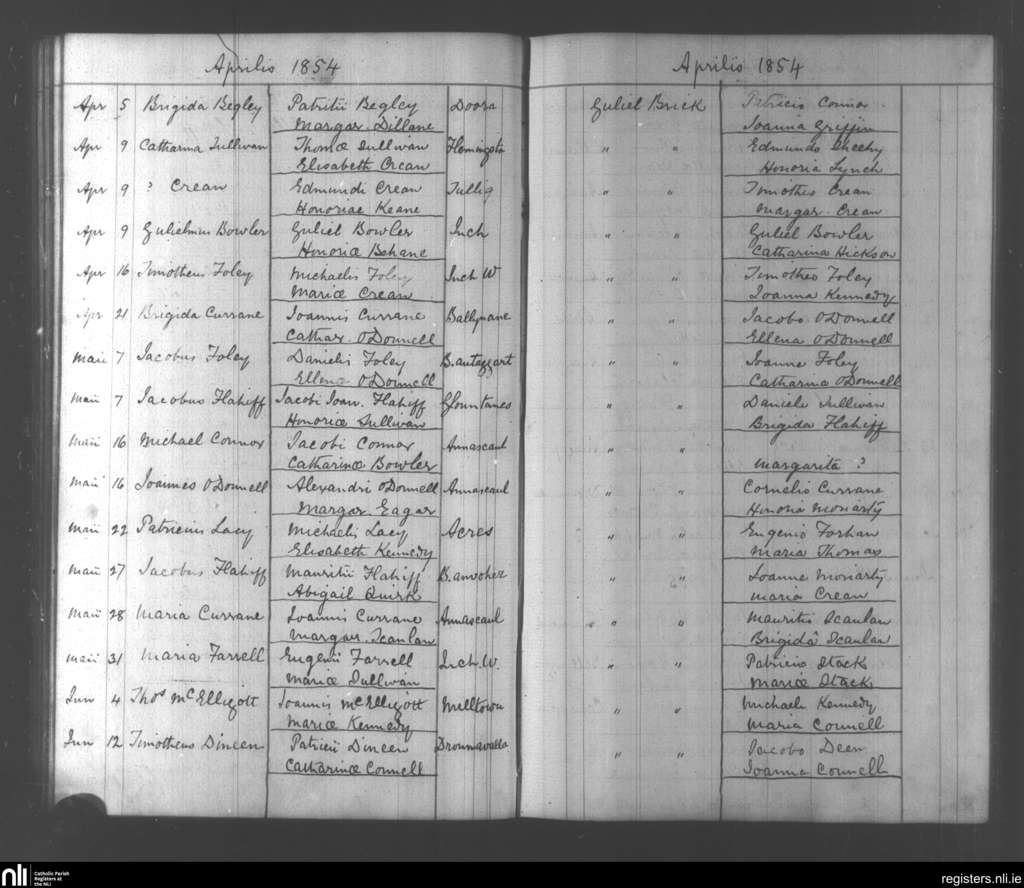 Aprilis 1854 Aprilis 1854
Apr 5 Brigida Begley Patritii Begley Doora Guliel Brick Patricio Connor
Margar. Dillane Joanna Griffin
Apr 9 Catharina Sullivan Thomæ Sullivan Flemingstn " " Edmundo Sheehy
Elisabeth Crean Honoria Lynch
Apr 9 ? Crean Edmundi Crean Tullig " " Timotheo Crean
Honoriae Keane Margar. Crean
Apr 9 Gulielmus Bowler Guliel Bowler Inch " " Guliel Bowler
Honoriæ Behane Catharina Hickson
Apr 16 Timotheus Foley Michaelis Foley Inch W " " Timotheo Foley
Mariæ Crean Joanna Kennedy
Apr 21 Brigida Currane Joannis Currane Ballynane " " Jacobo O'Donnell
Cathar. O'Donnell Ellena O'Donnell
Maii 7 Jacobus Foley Danielis Foley B.antaggart " " Joanne Foley
Ellena O'Donnell Catharina O'Donnell
Maii 7 Jacobus Flahiff Jacobi Joan. Flahiff Glountanes " " Daniele Sullivan
Honoriæ Sullivan Brigida Flahiff
Maii 16 Michael Connor Jacobi Connor Annascaul " "
Catharinæ Bowler Margarita ?
Maii 16 Joannes O'Donnell Alexandri O'Donnell Annascaul " " Cornelio Currane
Margar. Eagar Honoria Moriarty
Maii 22 Patricius Lacy Michaelis Lacy Acres " " Eugenio Forhan
Elisabeth Kennedy Maria Thomas
Maii 27 Jacobus Flahiff Mauritii Flahiff B.anvoher " " Joanne Moriarty
Abigail Quirk Maria Crean
Maii 28 Maria Currane Joannis Currane Annascaul " " Mauritio Scanlan
Margar. Scanlan Brigidâ Scanlan
Maii 31 Maria Farrell Eugenii Farrell Inch. W. " " Patricio Stack
Mariæ Sullivan Mariæ Stack
Jun 4 Thos McElligott Joannis McElligott Milltown " " Michaele Kennedy
Mariæ Kennedy Maria Connell
Jun 12 Timotheus Dineen Patricii Dineen Droumavalla " " Jacobo Deen
Catharinæ Connell Joanna Connell
nli Catholic Parish
Registers at
the NLI
registers.nli.ie